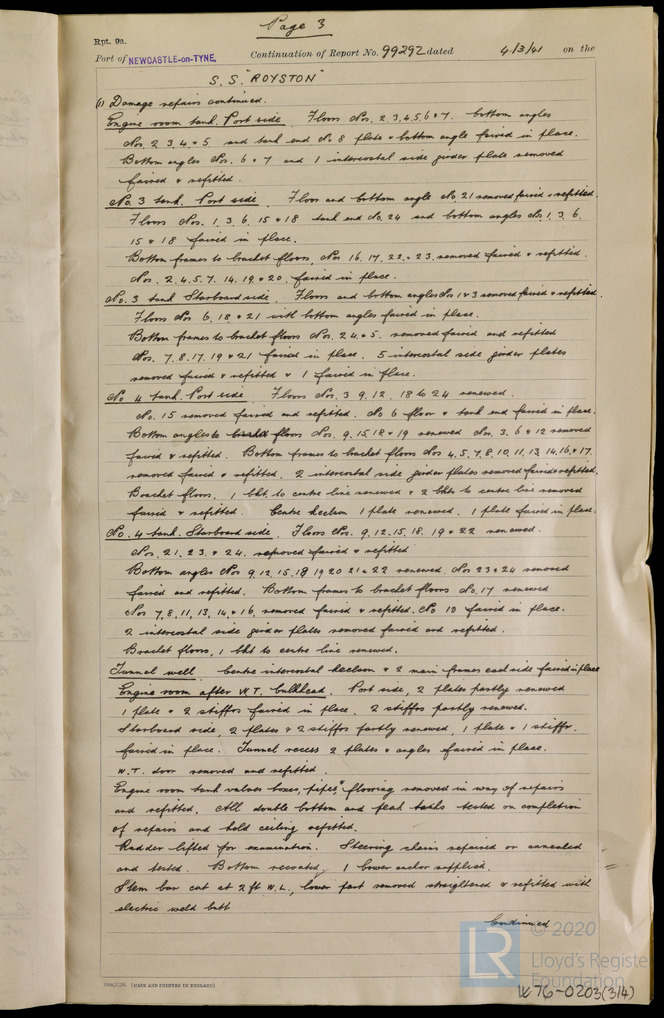 Page 3
Rpt. 9a.
Port of NEWCASTLE-on-TYNE. Continuation of Report No. 99292 dated 4/3/41 on the
S.S. "ROYSTON"
(1) Damage repairs continued.
Engine room tank. Port side. Floors Nos. 2.3.4.5.6 & 7. bottom angles
Nos. 2 3.4. & 5 and tank end No 8 plate & bottom angle faired in place.
Bottom angles Nos. 6 & 7 and 1 intercostal side girder plate removed
faired & refitted.
No. 3 tank. Port side. Floor and bottom angle No. 21 removed faired & refitted.
Floors Nos. 1. 3. 6. 15 & 18 tank end No. 24 and bottom angles Nos 1. 3. 6.
15 & 18 faired in place.
Bottom frames to bracket floors, Nos 16. 17. 22. & 23 removed faired & refitted.
Nos. 2. 4. 5. 7. 14. 19 & 20. faired in place.
No. 3 tank Starboard side. Floors and bottom angles Nos 1 & 3 removed faired & refitted.
Floors Nos 6. 18 & 21 with bottom angles faired in place.
Bottom frames to bracket floors Nos. 2. 4. & 5. removed faired and refitted
Nos. 7. 8. 17. 19 & 21 faired in place. 5 intercostal side girder plates
removed faired & refitted & 1 faired in place.
No 4 tank. Port side Floors Nos. 3 9. 12. 18 to 24 renewed.
No. 15 removed faired and refitted. No 6 floor & tank end faired in place.
Bottom angles to floors Nos. 9. 15. 18 & 19 renewed Nos. 3. 6 & 12 removed
faired & refitted. Bottom frames to bracket floors Nos 4. 5. 7. 8. 10. 11. 13. 14. 16. & 17.
removed faired & refitted. 2 intercostal side girder plates removed faired & refitted.
Bracket floors, 1 bkt to centre line renewed & 2 bkts to centre line removed
faired & refitted. Centre keelson 1 plate renewed. 1 plate faired in place.
No. 4 tank. Starboard side. Floors Nos. 9. 12. 15. 18. 19 & 22 renewed.
Nos. 21. 23. & 24. removed faired & refitted
Bottom angles Nos 9 12. 15. 18 19 20 21 & 22 renewed. Nos 23 & 24 removed
faired and refitted. Bottom frames to bracket floors No. 17 renewed
Nos 7, 8, 11, 13, 14, & 16, removed faired & refitted. No 10 faired in place.
2 intercostal side girder plates removed faired and refitted.
Bracket floors, 1 bkt to centre line renewed.
Tunnel well Centre intercostal keelson & 2 main frames each side faired in place
Engine room after W.T. bulkhead. Port side, 2 plates partly renewed
1 plate & 2 stiffrs faired in place, 2 stiffrs partly renewed.
Starboard side, 2 plates & 2 stiffrs partly renewed, 1 plate & 1 stiffr.
faired in place. Tunnel recess 2 plates & angles faired in place.
W.T. door removed and refitted.
Engine room tank valves boxes, pipes & flooring removed in way of repairs
and refitted. All double bottom and peak tanks tested on completion
of repairs and hold ceiling refitted.
Rudder lifted for examination. Steering chains repaired or annealed
and tested. Bottom recoated, 1 bower anchor supplied.
Stem bar cut at 2 ft W.L., lower part removed straightened & refitted with
electric weld butt
Continued
(MADE AND PRINTED IN ENGLAND)
© 2020
LR
Lloyd's Registe
Foundation
W76-0203(3/4)